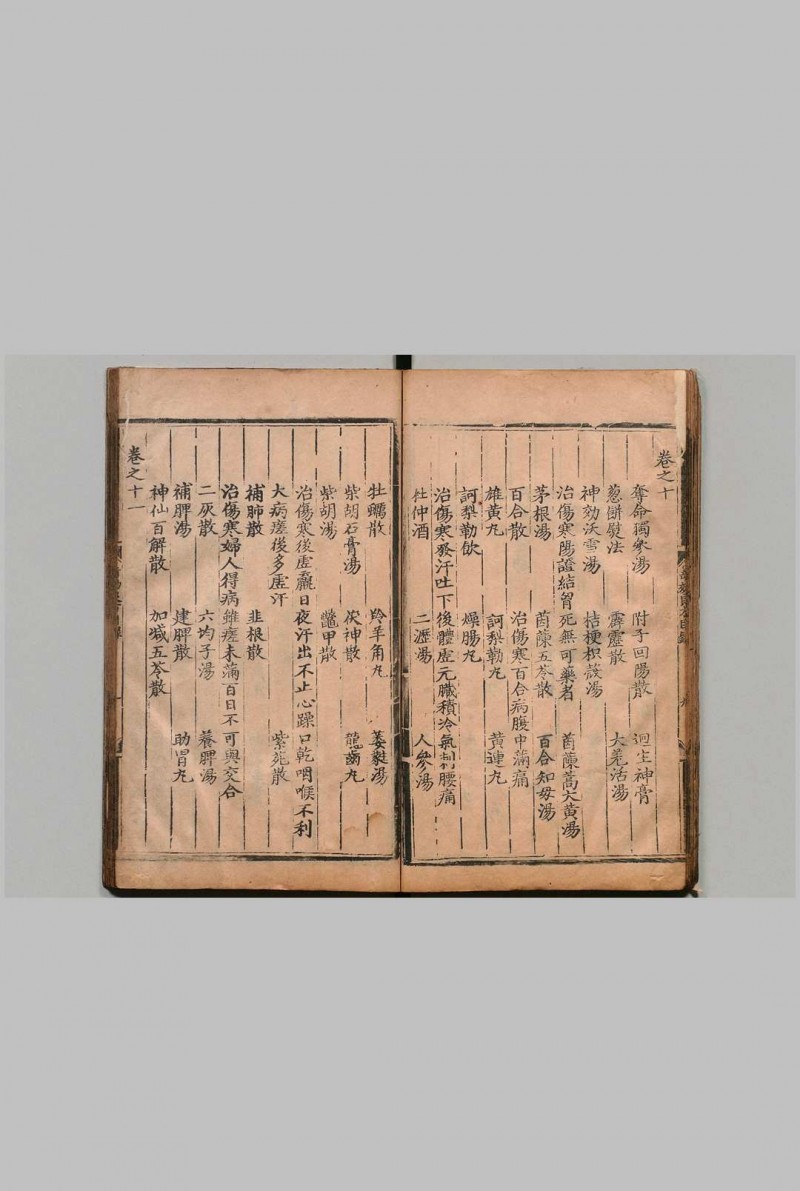 卷之十
奪命獨參湯 附子回陽散 迴生神膏
葱餅熨法 霹靂散 大羌活湯
神効沃雪湯 桔梗枳殼湯
治傷寒陽證結胷死無可藥者 茵蔯蒿大黃湯
茅根湯 茵蔯五苓散 百合知母湯
百合散 治傷寒百合病腹中滿痛
雄黃丸 訶梨勒丸 黃連丸
訶梨勒飲 燥腸丸
治傷寒發汗吐下後體虛元臟積冷氣刺腰痛
杜仲酒 二瀝湯 人參湯
牡蠣散 羚羊角丸 萎蕤湯
柴胡石膏湯 茯神散 龍齒丸
柴胡湯 鼈甲散
治傷寒後虛羸日夜汗出不止心躁口乾咽喉不利
大病瘥後多虛汗 紫菀散
補肺散 韭根散
治傷寒婦人得病雖瘥未滿百日不可與交合
二灰散 六均子湯 養脾湯
補脾湯 建脾散 助胃丸
神仙百解散 加減五苓散
卷之十一